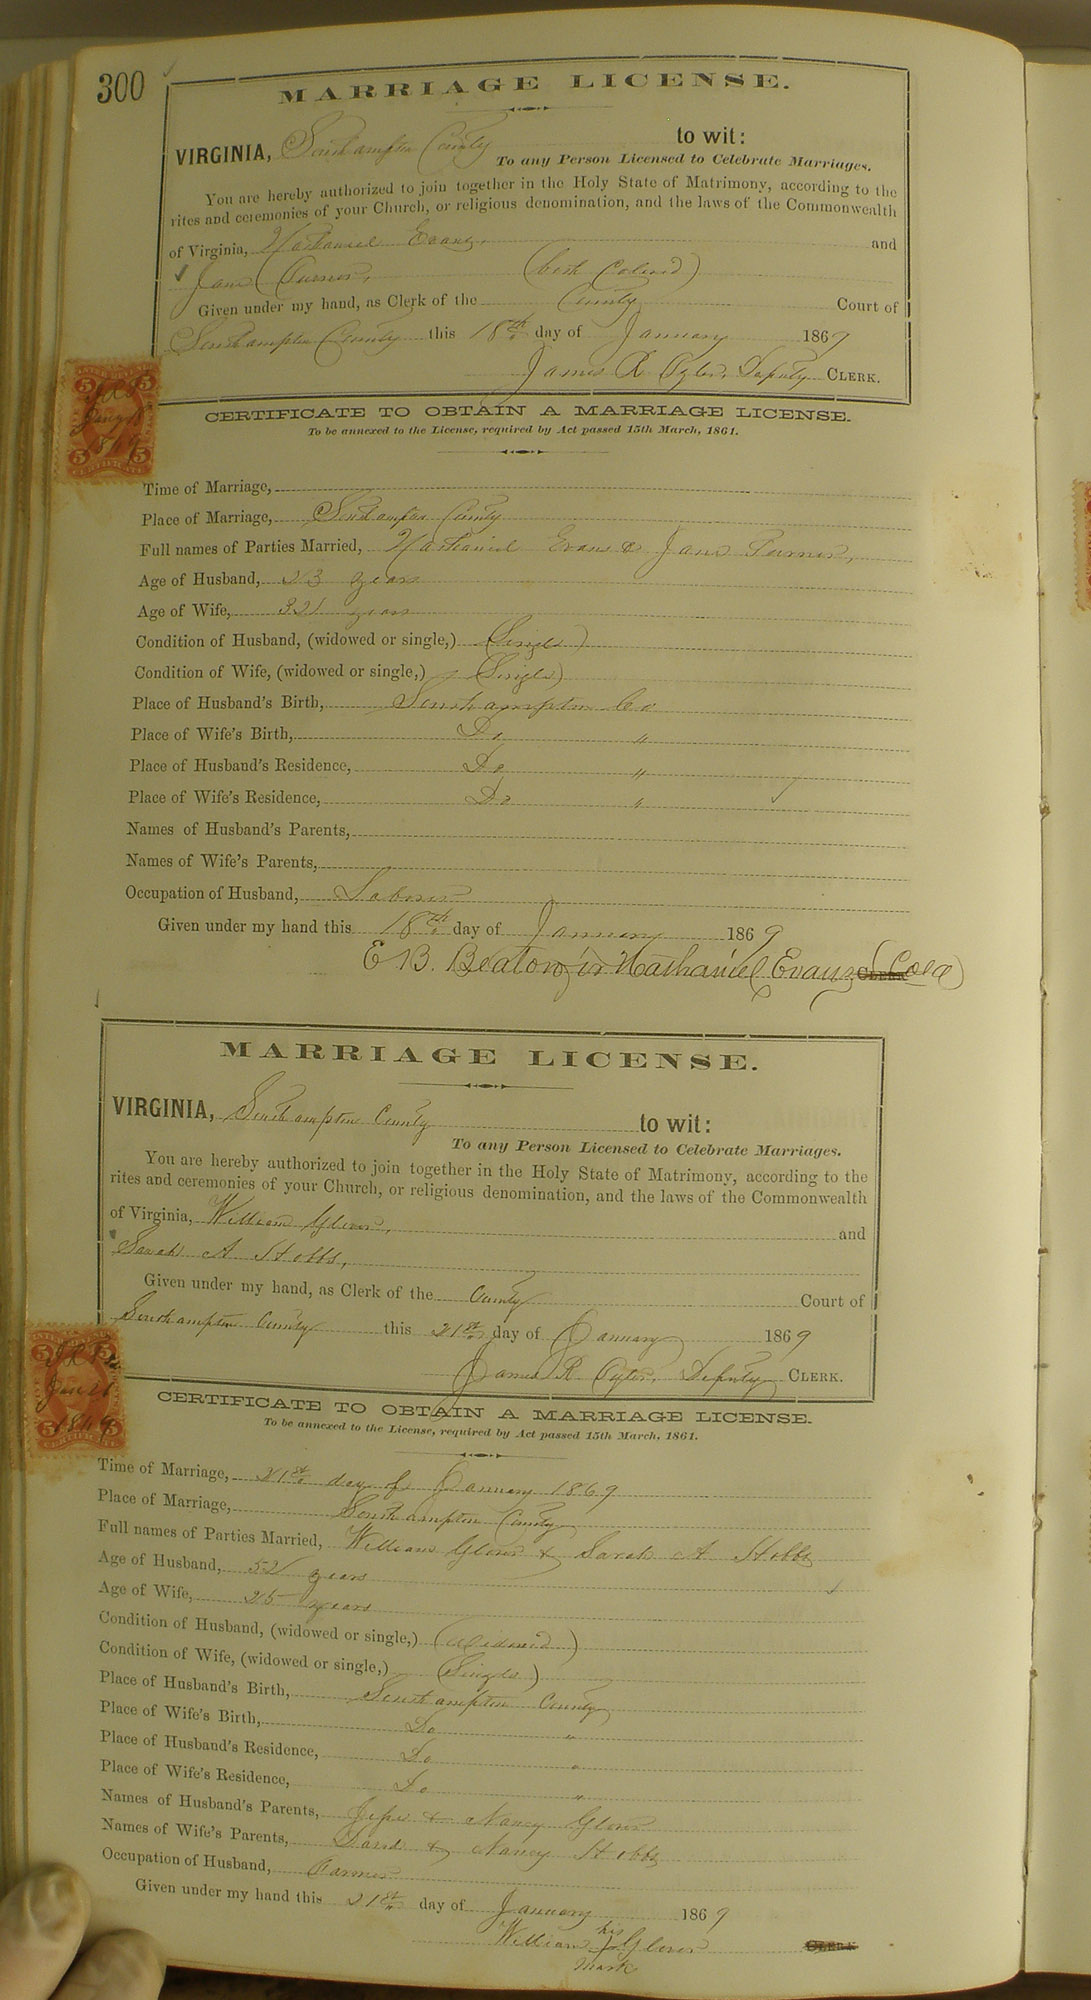 300
MARRIAGE LICENSE.
VIRGINIA, Southampton County to wit:
To any Person Licensed to Celebrate Marriages.
You are hereby authorized to join together in the Holy State of Matrimony, according to the
rites and ceremonies of your Church, or religious denomination, and the laws of the Commonwealth
of Virginia, Nathaniel Evans, and
Jane Turner, (both Colored)
Given under my hand, as Clerk of the County Court of
Southampton County this 18th day of January 1869
James R. Deputy CLERK.
5 5
Jany 18
1869
5 5
CERTIFICATE
CERTIFICATE TO OBTAIN A MARRIAGE LICENSE.
To be annexed to the License, required by Act passed 15th March, 1861.
Time of Marriage,
Place of Marriage, Southampton County
Full names of Parties Married, Nathaniel Evans & Jane Turner,
Age of Husband, 23 years
Age of Wife, years
Condition of Husband, (widowed or single,) (Single)
Condition of Wife, (widowed or single,) (Single)
Place of Husband's Birth, Southampton Co
Place of Wife's Birth, Do "
Place of Husband's Residence, Do "
Place of Wife's Residence, Do "
Names of Husband's Parents,
Names of Wife's Parents,
Occupation of Husband, Laborer
Given under my hand this 18th day of January 1869
E B. Beaton for Nathaniel Evans (Cold) CLERK
MARRIAGE LICENSE.
VIRGINIA, Southampton County to wit:
To any Person Licensed to Celebrate Marriages.
You are hereby authorized to join together in the Holy State of Matrimony, according to the
rites and ceremonies of your Church, or religious denomination, and the laws of the Commonwealth
of Virginia, William Glover, and
Sarah A Stobbs,
Given under my hand, as Clerk of the County Court of
Southampton County this 21st day of January 1869
James R. Deputy CLERK.
5 5
Jany 21
1869
5 5
CERTIFICATE
CERTIFICATE TO OBTAIN A MARRIAGE LICENSE.
To be annexed to the License, required by Act passed 15th March, 1861.
Time of Marriage, 21st day of January 1869
Place of Marriage, Southampton County
Full names of Parties Married, William Glover & Sarah A Stobbs
Age of Husband, 52 years
Age of Wife, 25 years
Condition of Husband, (widowed or single,) (Widowed)
Condition of Wife, (widowed or single,) (Single)
Place of Husband's Birth, Southampton County
Place of Wife's Birth, Do "
Place of Husband's Residence, Do "
Place of Wife's Residence, Do "
Names of Husband's Parents, Jesse & Nancy Glover
Names of Wife's Parents, David & Nancy Stobbs
Occupation of Husband, Farmer
Given under my hand this 21st day of January 1869
his
William Glover CLERK
mark